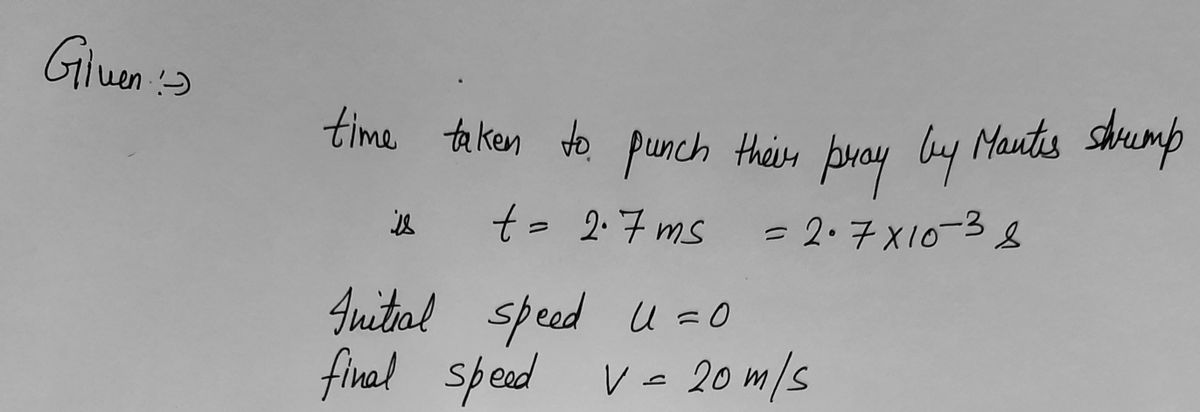 Given :⇒
time taken to punch their pray by Mantis shrump
is t = 2.7 ms = 2.7 x 10-3 s
Initial speed u = 0
final speed v = 20 m/s